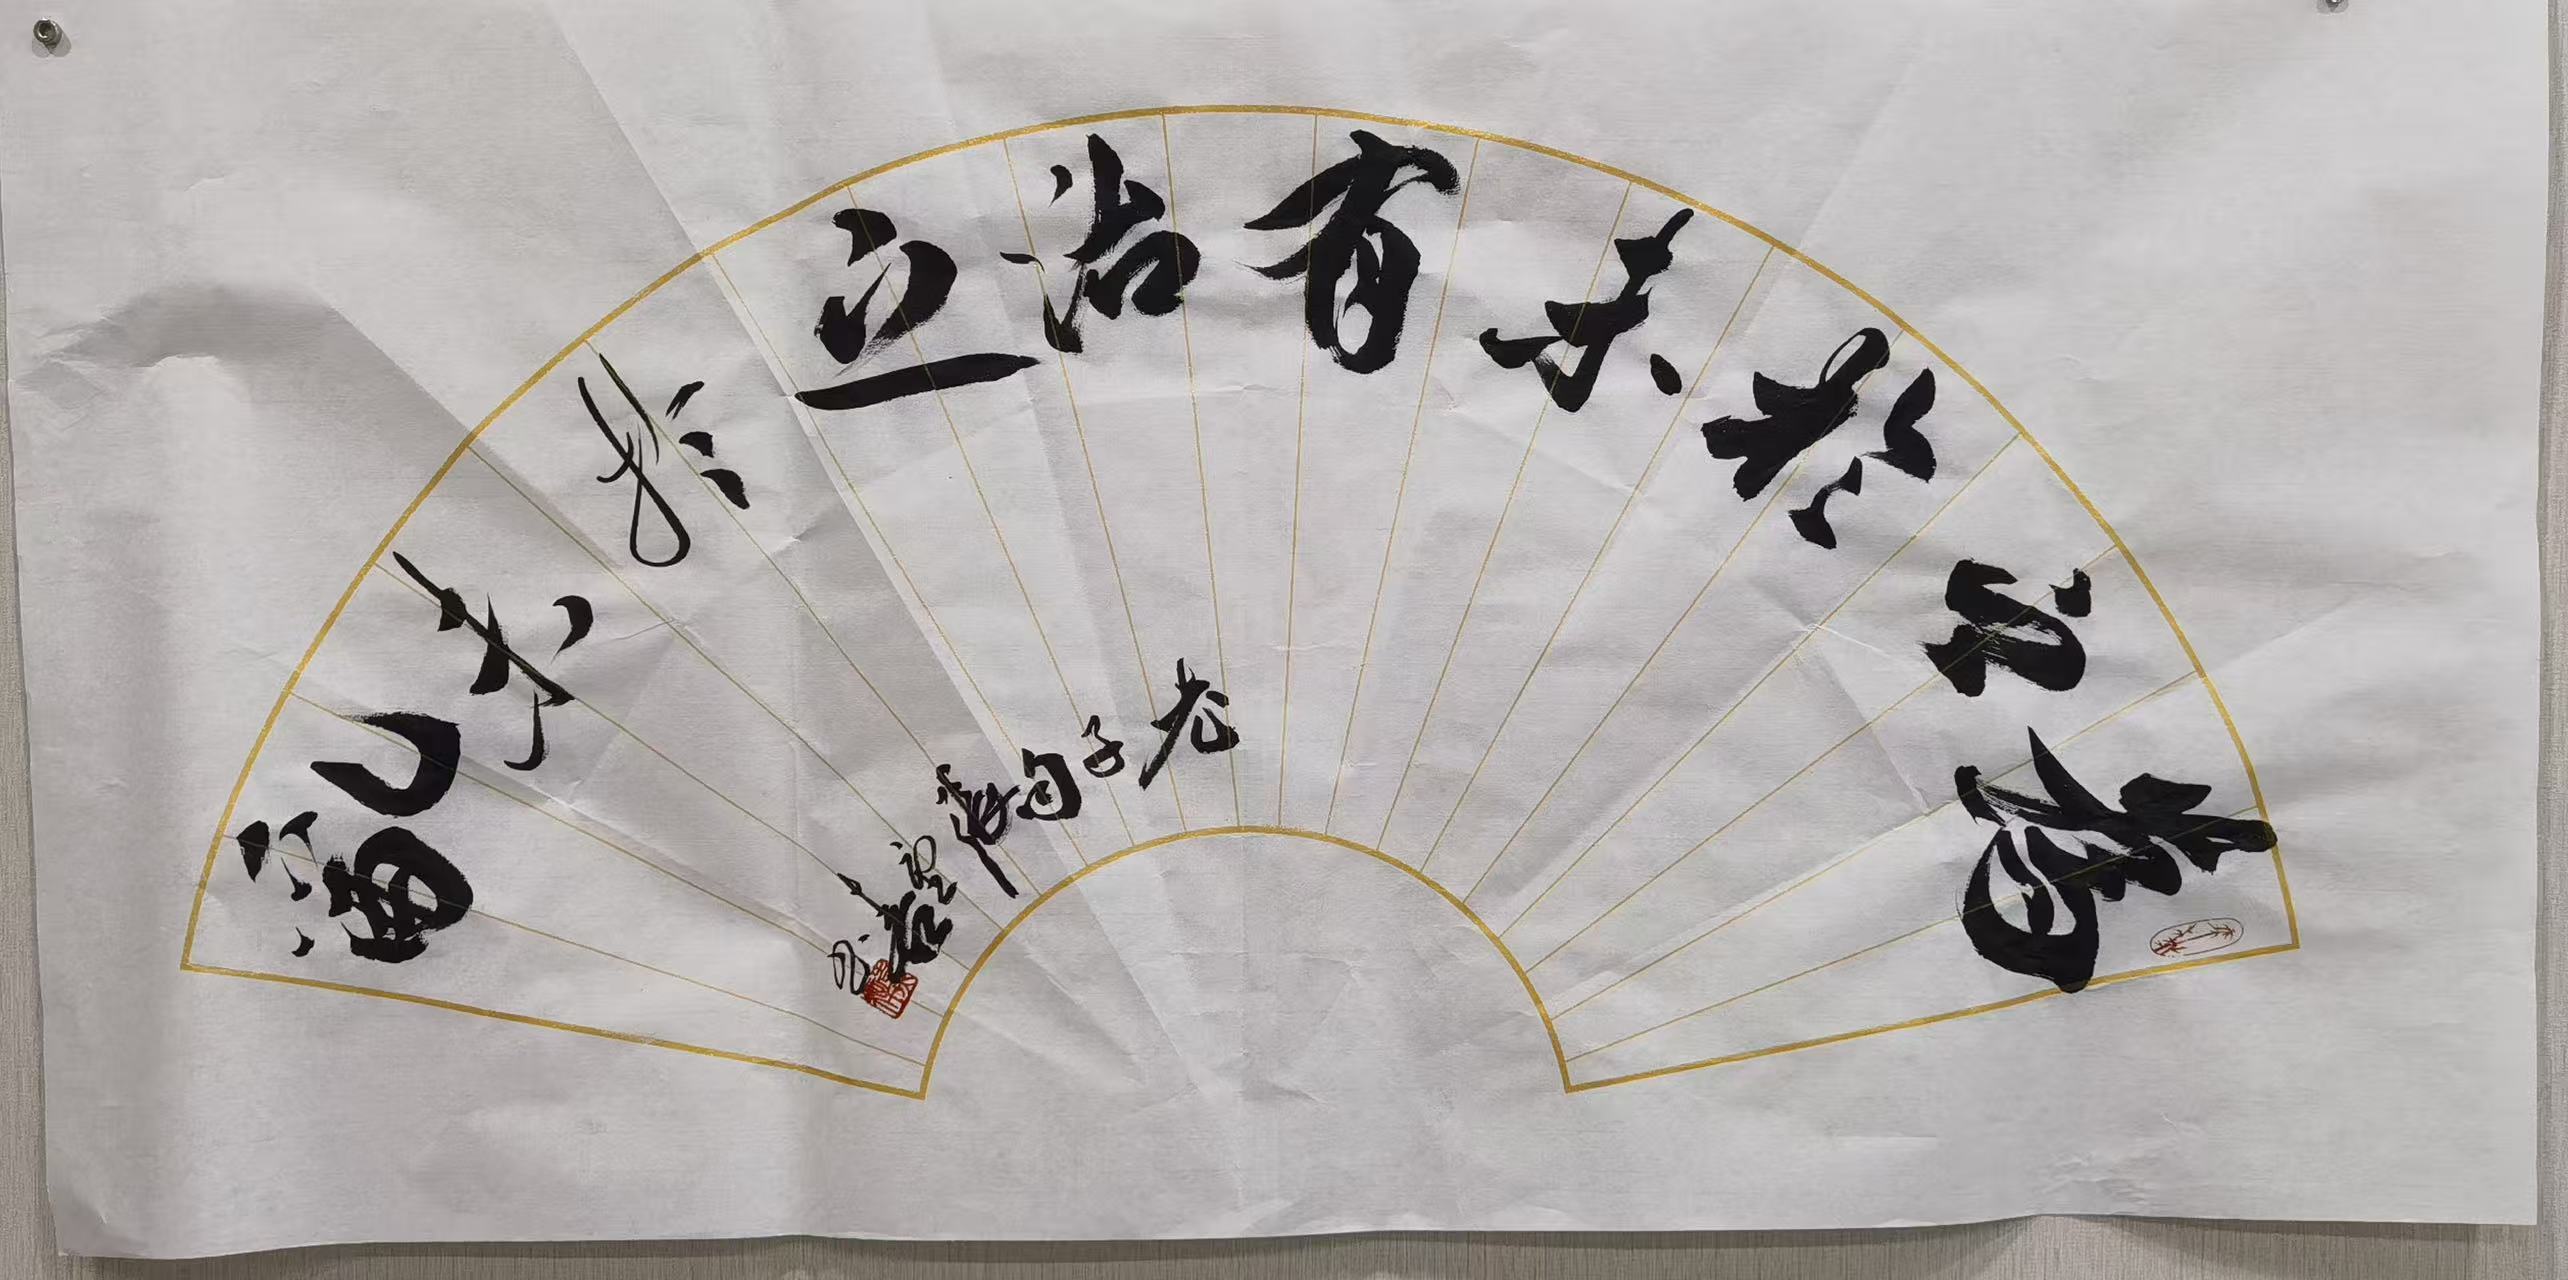 為之於未有治之於未亂
老子句